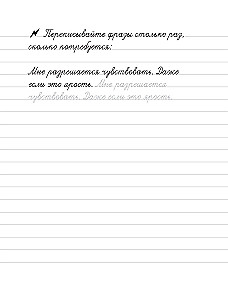 Переписывайте фразы столько раз,
сколько потребуется:
Мне разрешается чувствовать. Даже
если это ярость. Мне разрешается
чувствовать. Даже если это ярость.